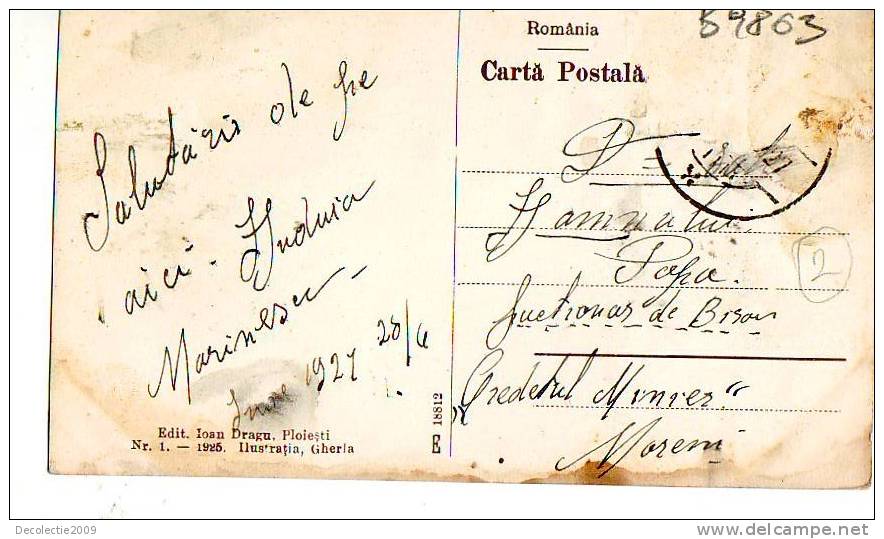 România
Cartă Postală
59863
Salutări de pe
aici.
Marinescu
1927 28/6
Edit. Ioan Dragu, Ploiești
Nr. 1. — 1925. Ilustrația, Gherla
E 18812
D =
Domnului
Popa.
2
de Birou
Credetul Minier"
Moreni
Decolectie2009
www.delcampe.net